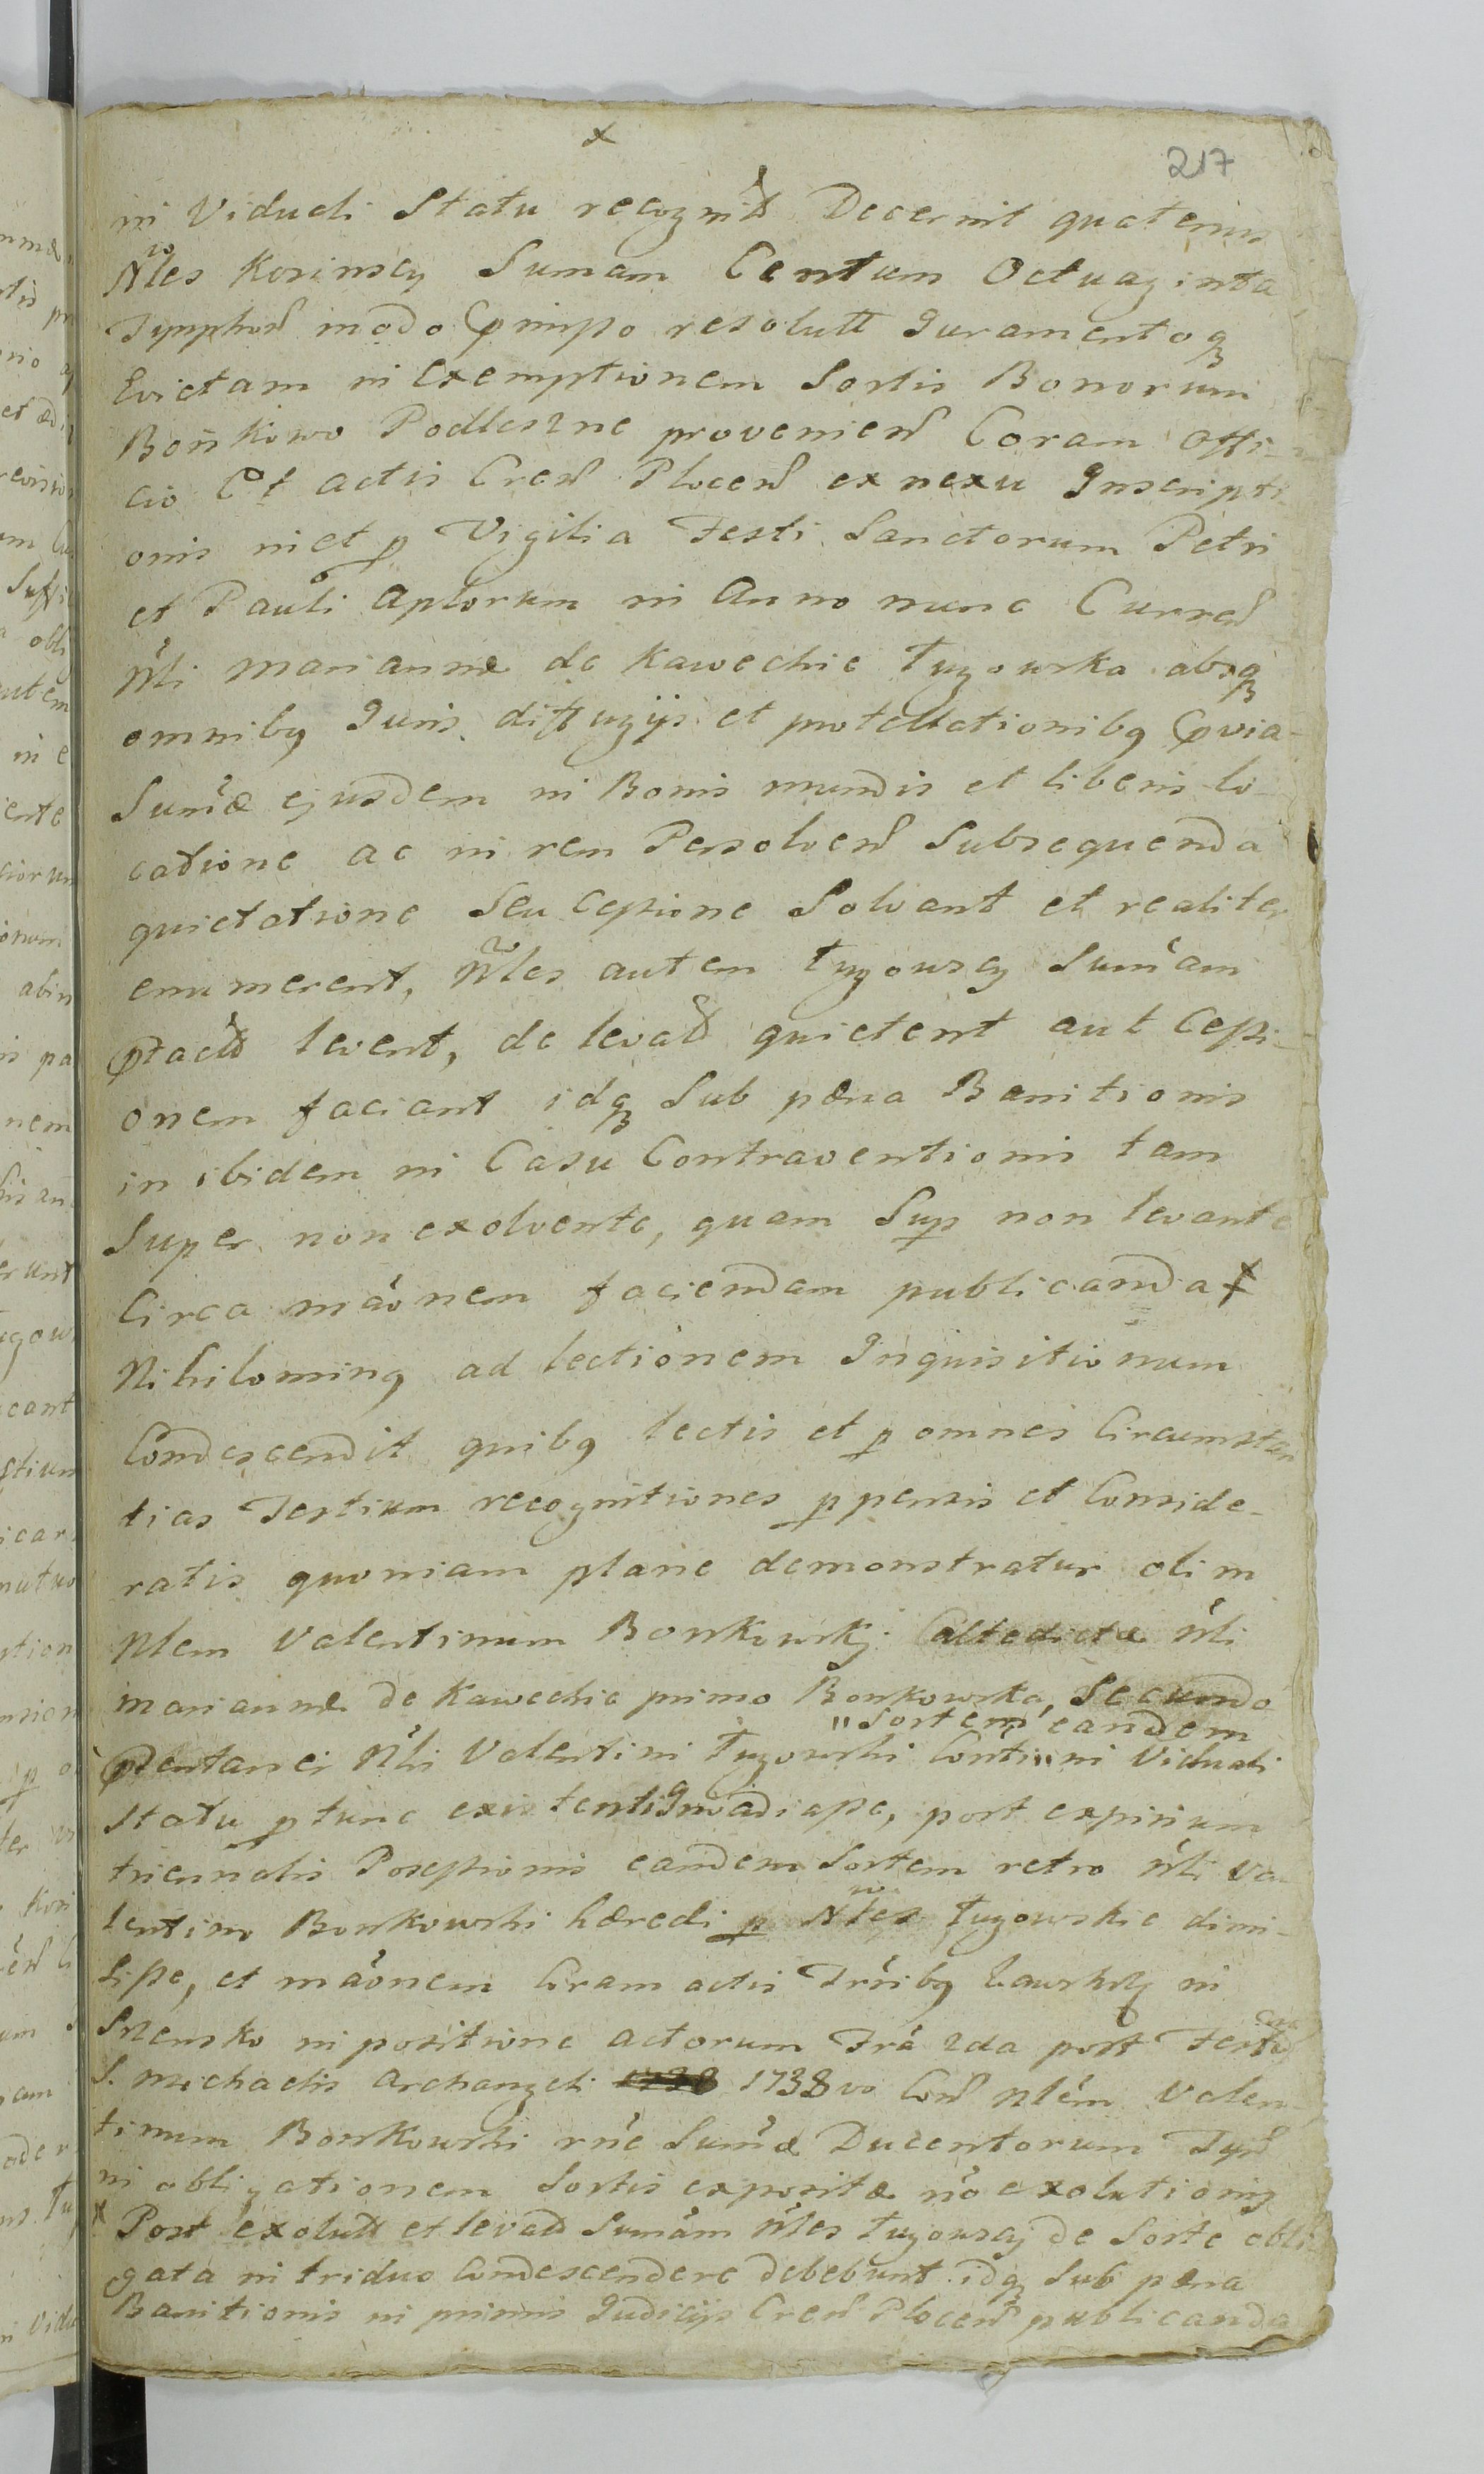 x
217
in Viduali Statu recognitt Decernit quatenus
Nles Kosinscy Sumam Centum Octuaginta
Tymphor modo pmisso resolutt Juramentoq
Evictam in Exemptionem Sortis Bonorum
Bońkowo Podleszne provenien Coram Offi-
cio Et actis Cren Plocen ex nexu Inscripti-
onis in et p Vigilia Festi Sanctorum Petri
et Pauli Aplorum in Anno nunc Curren
Nli Mariannæ de Kawechie Tuzowska absq
omnibq Juris diffugijs et protestationibq pvia-
Sumæ ejusdem in Bonis mundis et liberis lo-
catione ac in rem Persolven Subsequenda
quietatione Seu Cessione Solvant et realiter
enumerent, Nles autem Tuzowscy Sumam
ptactt levent, de levatt quietent aut Cessi-
onem faciant idq Sub pæna Banitionis
in ibidem in Casu Contraventionis tam
Super non exolvente, quam Sup non levante
Circa maonem faciendam publicanda x
Nihilominq ad lectionem Inquisitionum
Condescendit quibq lectis et p omnes Circumstan
tias Testium recognitiones ppensis et Conside-
ratis quoniam plane demonstratur olim
Nlem Valentinum Bonkowskj altedictæ Nli
Mariannæ de Kawechie primo Bonkowska, Secundo
"Sortem eandem
pdentanei Nli Valentini Tuzowski Conti " in Viduali
Statu p tunc existenti Invadiasse, post expirium
triennalis Possessionis eandem Sortem retro Nli Va-
lentino Bonkowski hæredi p Nles Tuzowskie dimi-
sisse, et maonem Coram actis Trribq Zawskrz in
Szrensko in positione actorum Fra 2da post Festu
S. Michaelis Archangeli 1738vo Con Nlem Valen-
tinum Bonkowski rne Sumæ Ducentorum Tyn
in obligationem Sortis expositæ no exolutionis
x Post exolutt et levatt Sumam Nles Tuzowscy de Sorte obli
gata in triduo Condescendere debebunt idq Sub pæna
Banitionis in primis Judicijs Cren Plocen publicanda